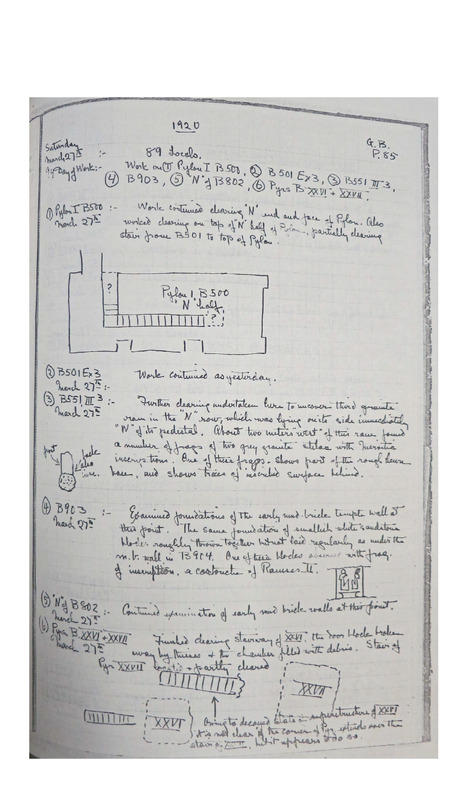 1920
G.B.
P. 85
Saturday
March 27th :-
89 Locals.
Day of Work :- Work on ① Pylon I B500, ② B501 Ex3, ③ B551 III 3,
④ B903, ⑤ "N" of B802, ⑥ Pyrs B XXVI + XXVII.
① Pylon I B500 :- Work continued clearing "N" end and face of Pylon. Also
March 27th worked clearing on top of "N" half of Pylon, partially clearing
stair from B501 to top of Pylon.
?
Pylon I, B500
"N" half
?
② B501 Ex3 Work continued as yesterday.
March 27th :-
③ B551 III 3 :- Further clearing undertaken here to uncover third granite
March 27th ram in the "N" row, which was lying on its side immediately
"N" of its pedestal. About two meters "west" of this ram found
a number of frags of two grey granite stelae with Meroitic
inscriptions. One of these frags. shows part of the rough hewn
base, and shows traces of inscribed surface behind.
front
④ B903 :- Examined foundations of the early mud brick temple wall at
March 27th this point. The same foundation of smallish white sandstone
blocks roughly thrown together but not laid regularly as under the
m.b. wall in B904. One of these blocks with frag.
of inscription, a cartouche of Ramses II.
⑤ "N" of B802 :- Continued examination of early mud brick walls at this point.
March 27th
⑥ Pyrs B XXVI + XXVII Finished clearing stairway of XXVI, the door block broken
March 27th away by thieves + the chamber filled with debris. Stair of
Pyr XXVII located + partly cleared
XXVI
XXVII
Owing to decayed state of superstructure of XXVI
it is not clear if the corner of Pyr extends over the
stair of, but it appears to do so.